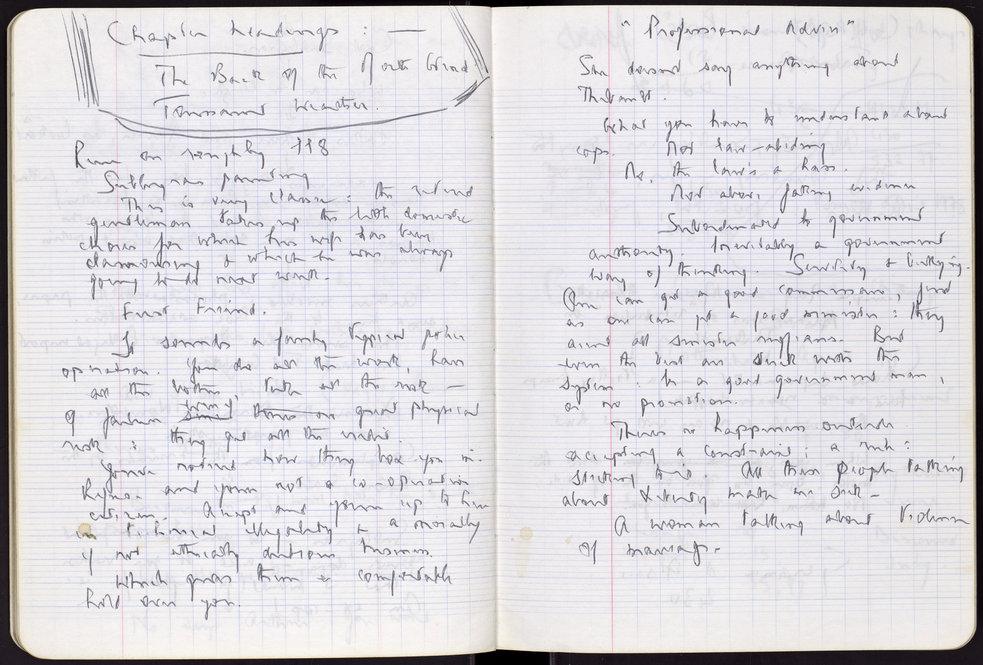 Chapter headings : —
The Back of the North Wind
Toussaint
Run on roughly 118
Suburban painting
This is very classic : the retired
gentleman takes up the little domestic
chores for which his wife has been
clamouring & which he was always
going to do next week.
First Friend.
It sounds a fairly typical police
operation. You do all the work, have
all the bother, take all the risk —
of failure or great physical
risk : they get all the credit.
You've noticed how they box you in.
Refuse and you're not a co-operative
citizen. Accept and you're up to
in technical illegality & a morally
if not ethically dubious business.
Which gives them a comfortable
hold over you.
"Professional Advice"
She doesn't say anything about
Thibault.
What you have to understand about
cops. Not law-abiding
No, the law's a hass.
Not above faking evidence
Subordinated to government
authority. Inevitably a government
way of thinking. Servility & bullying.
One can get a good commissaire, just
as one can get a good minister : they
aren't all sinister ruffians. But
even the best are stuck with the
system. Be a good government man,
or no promotion.
There is happiness outside
accepting a constraint ; a rule :
sticking to it. All these people talking
about liberty make me sick —
A woman talking about Violence
of marriage.